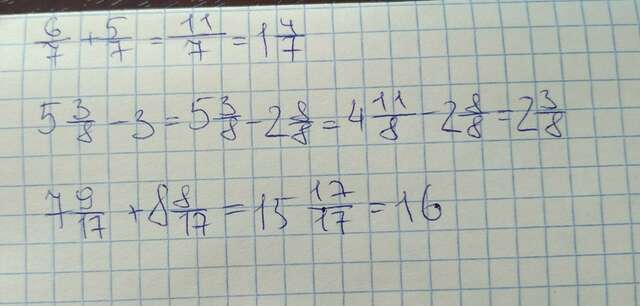 6/7 + 5/7 = 11/7 = 1 4/7
5 3/8 - 3 = 5 3/8 - 2 8/8 = 4 11/8 - 2 8/8 = 2 3/8
7 9/17 + 8 8/17 = 15 17/17 = 16